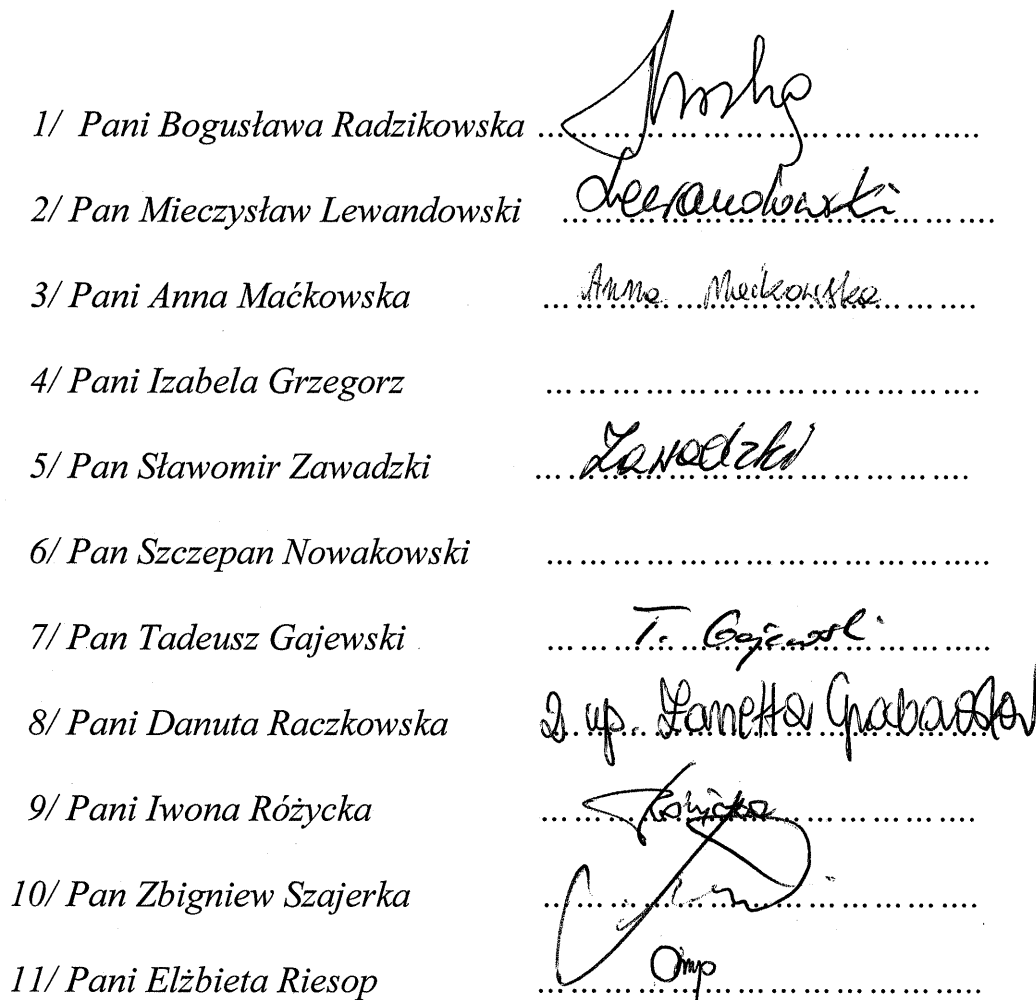 1/ Pani Bogusława Radzikowska ...............................
2/ Pan Mieczysław Lewandowski Lewandowski
3/ Pani Anna Maćkowska Anna Maćkowska
4/ Pani Izabela Grzegorz ...............................
5/ Pan Sławomir Zawadzki Zawadzki
6/ Pan Szczepan Nowakowski ...............................
7/ Pan Tadeusz Gajewski T. Gajewski
8/ Pani Danuta Raczkowska Z up. Żanetta
9/ Pani Iwona Różycka Różycka
10/ Pan Zbigniew Szajerka ...............................
11/ Pani Elżbieta Riesop ...............................